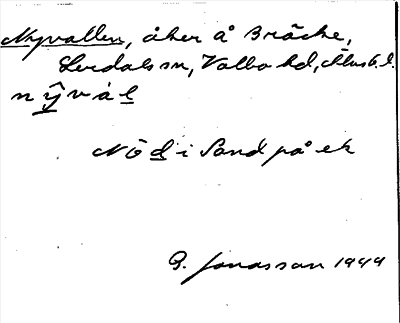 Nyvallen, åker å Bräcke,
Lerdals sn, Valbo hd, Älvsb.l.
nŷvàl
Nö d i Sand på ek
G. Jonasson 1944